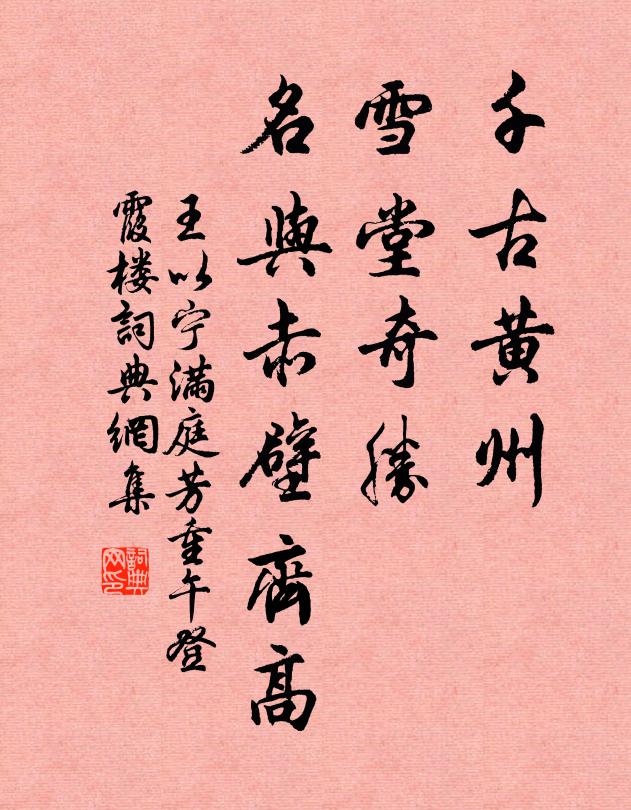 千古黄州
雪堂奇勝
名與赤壁齊高
王以宁滿庭芳重午登
霞楼詞典網集
詞典网印